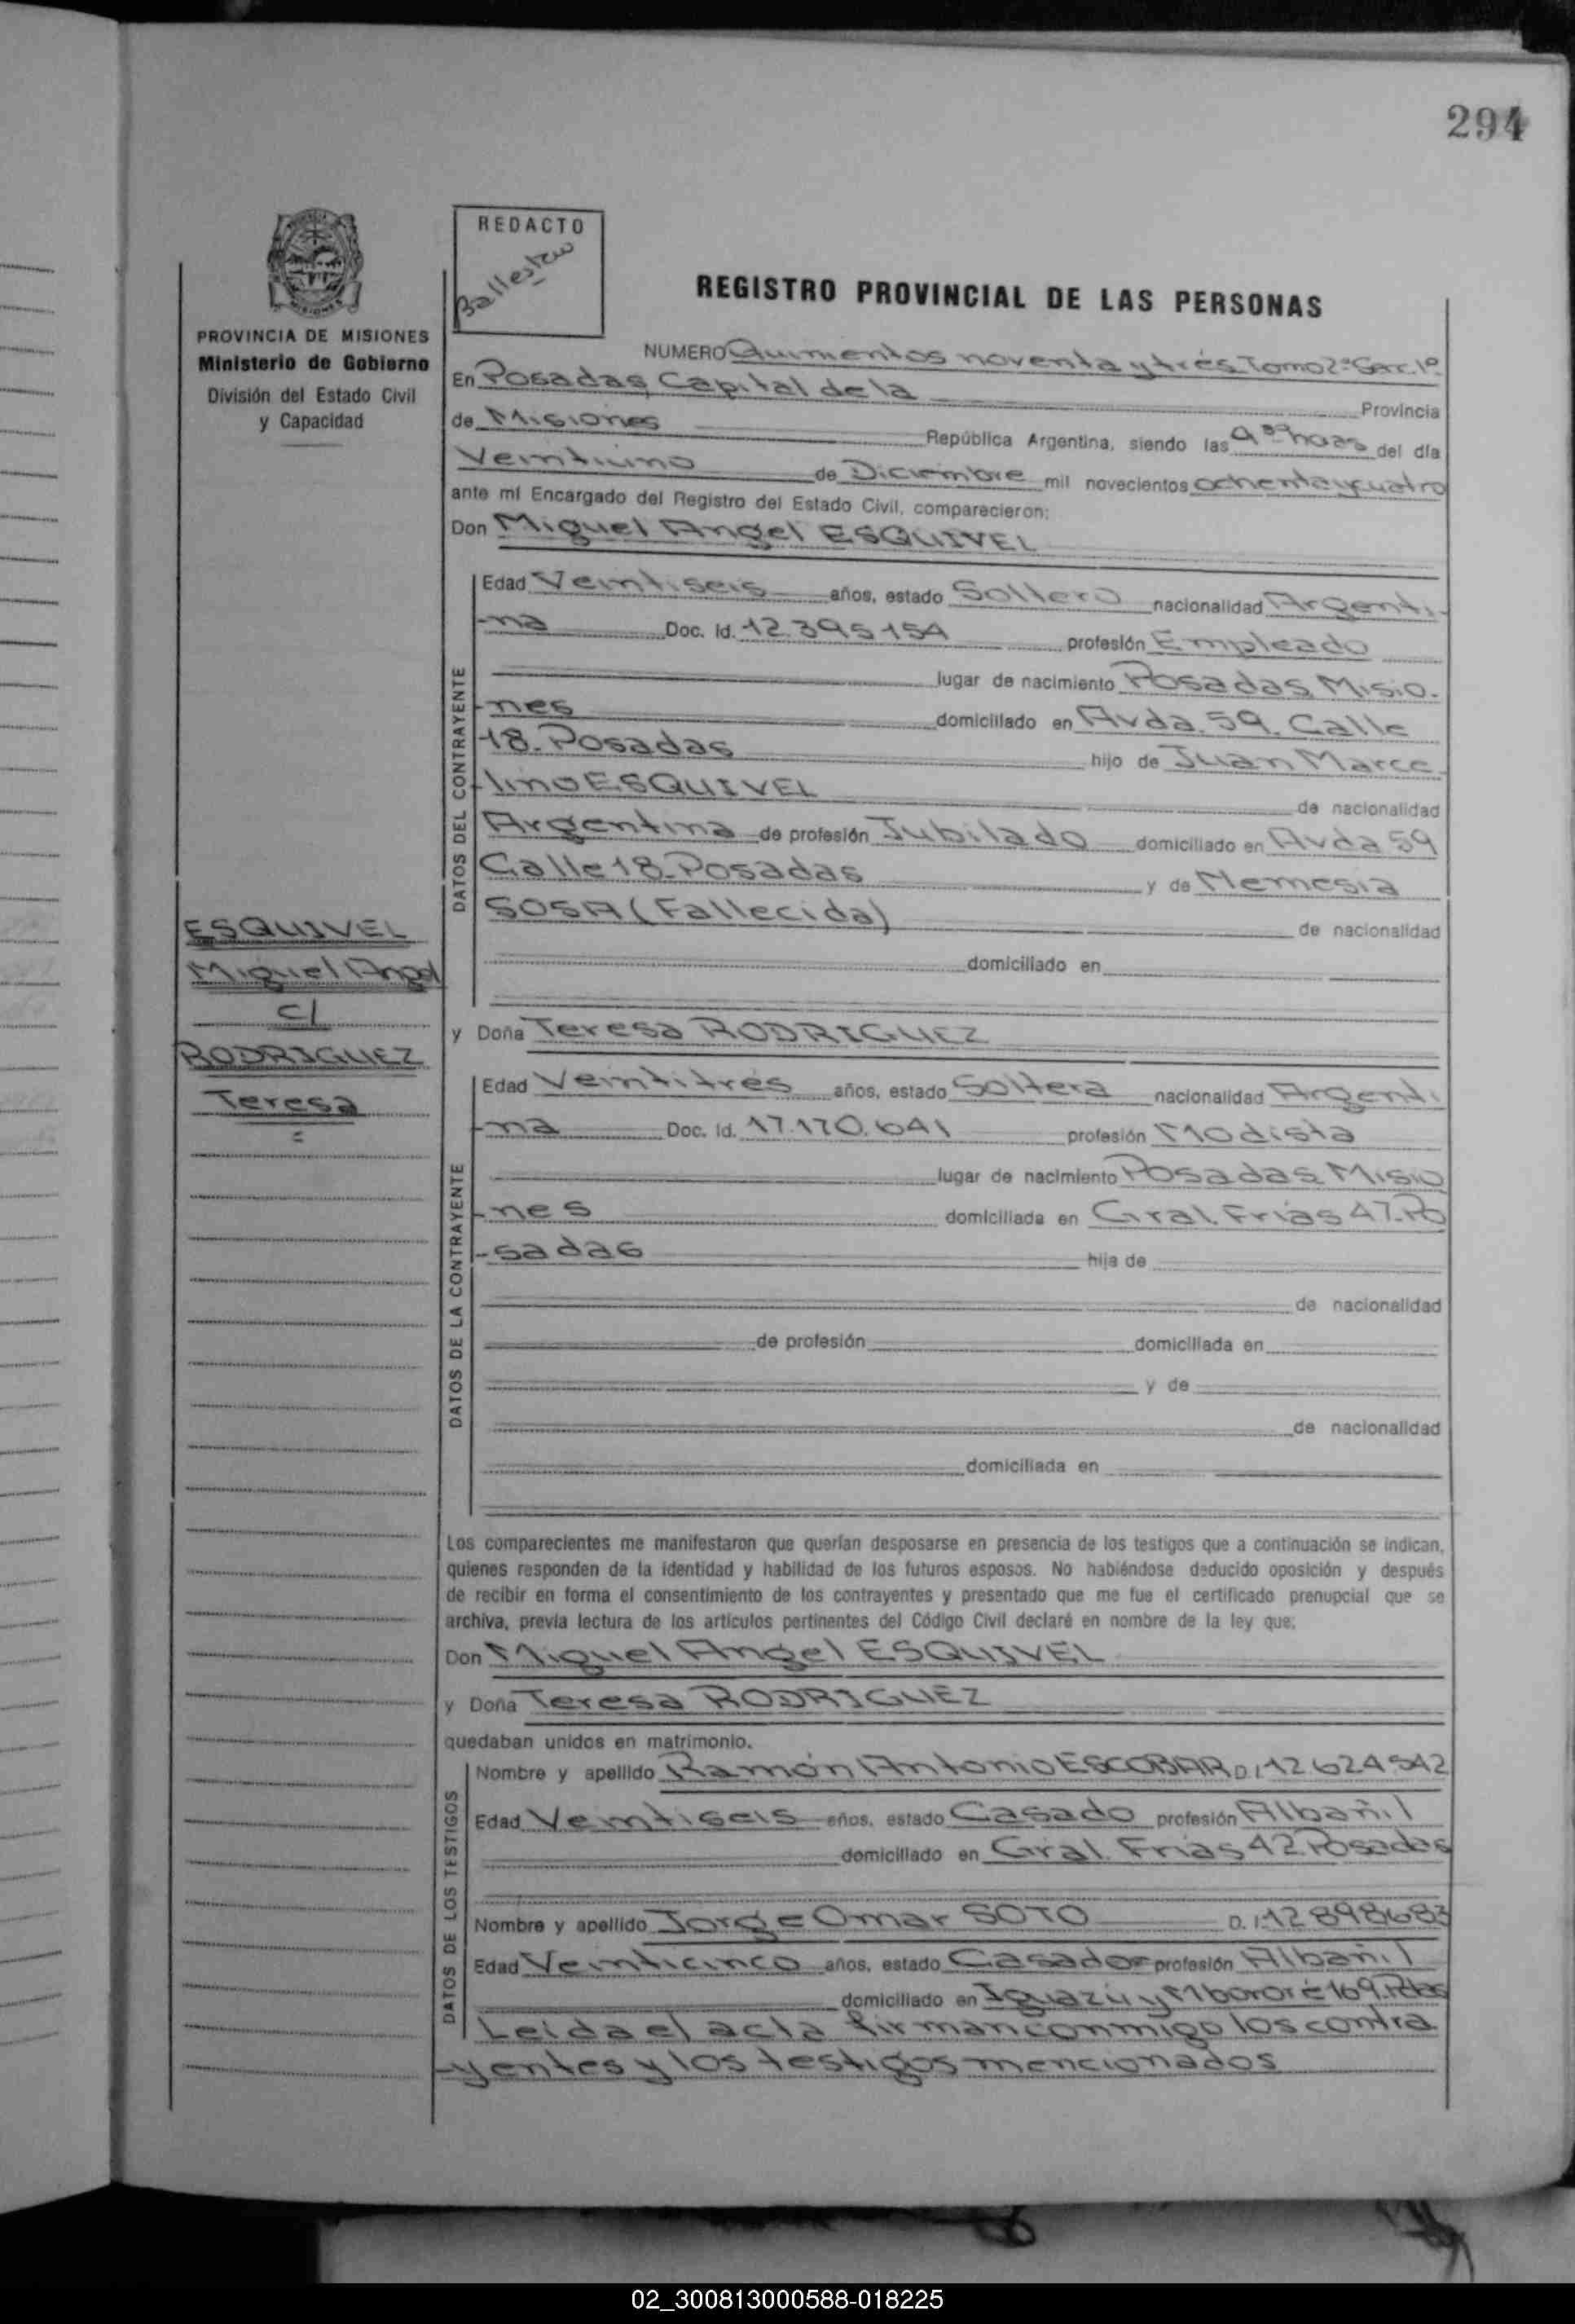 294
REDACTO
PROVINCIA DE MISIONES
Ministerio de Gobierno
División del Estado Civil
y Capacidad
REGISTRO PROVINCIAL DE LAS PERSONAS
NUMERO Quinientos noventa y tres Tomo 2º Sec. 1º
En Posadas, Capital de la Provincia
de Misiones República Argentina, siendo las 9 horas del día
Veintiuno de Diciembre mil novecientos ochenta y cuatro
ante mí Encargado del Registro del Estado Civil, comparecieron:
Don Miguel Angel ESQUIVEL
DATOS DEL CONTRAYENTE
Edad Veintiseis años, estado Soltero nacionalidad Argenti-
-na Doc. Id. 12.395.154 profesión Empleado
lugar de nacimiento Posadas, Misio-
-nes domiciliado en Avda. 59. Calle
18. Posadas hijo de Juan Marce-
-lino ESQUIVEL de nacionalidad
Argentina de profesión Jubilado domiciliado en Avda 59
Calle 18. Posadas y de Nemesia
SOSA (Fallecida) de nacionalidad
domiciliado en
ESQUIVEL
Miguel Angel
c/
RODRIGUEZ
Teresa
y Doña Teresa RODRIGUEZ
DATOS DE LA CONTRAYENTE
Edad Veintitrés años, estado Soltera nacionalidad Argenti
-na Doc. Id. 17.170.641 profesión Modista
lugar de nacimiento Posadas, Misio
-nes domiciliada en Gral. Frias 47. Po
-sadas hija de
de nacionalidad
de profesión domiciliada en
y de
de nacionalidad
domiciliada en
Los comparecientes me manifestaron que querían desposarse en presencia de los testigos que a continuación se indican,
quienes responden de la identidad y habilidad de los futuros esposos. No habiéndose deducido oposición y después
de recibir en forma el consentimiento de los contrayentes y presentado que me fue el certificado prenupcial que se
archiva, previa lectura de los artículos pertinentes del Código Civil declaré en nombre de la ley que:
Don Miguel Angel ESQUIVEL
y Doña Teresa RODRIGUEZ
quedaban unidos en matrimonio.
DATOS DE LOS TESTIGOS
Nombre y apellido Ramón Antonio ESCOBAR D.I. 12.624.542
Edad Veintiseis años, estado Casado profesión Albañil
domiciliado en Gral. Frias 42 Posadas
Nombre y apellido Jorge Omar SOTO D.I. 12.898.683
Edad Veinticinco años, estado Casado profesión Albañil
domiciliado en Iguazú y Mbororé 169. Pdas
Leida el acta firman conmigo los contra
-yentes y los testigos mencionados
02_300813000588-018225